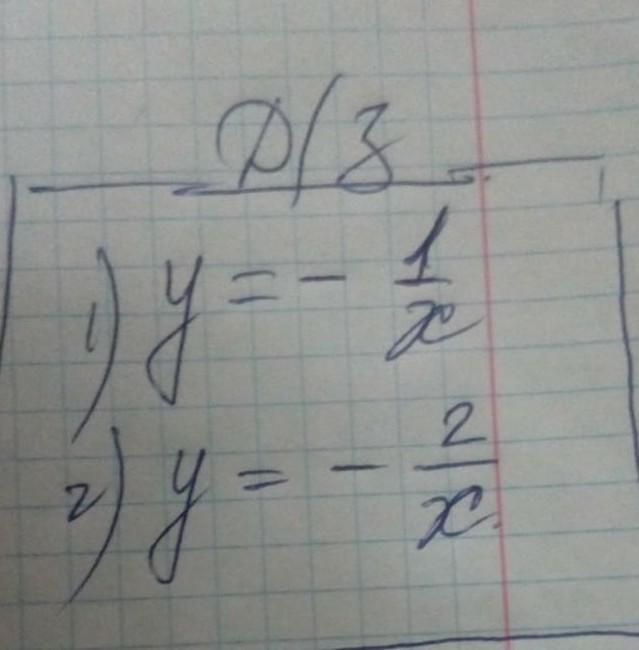 Д/З
1) y = - 1/x
2) y = - 2/x